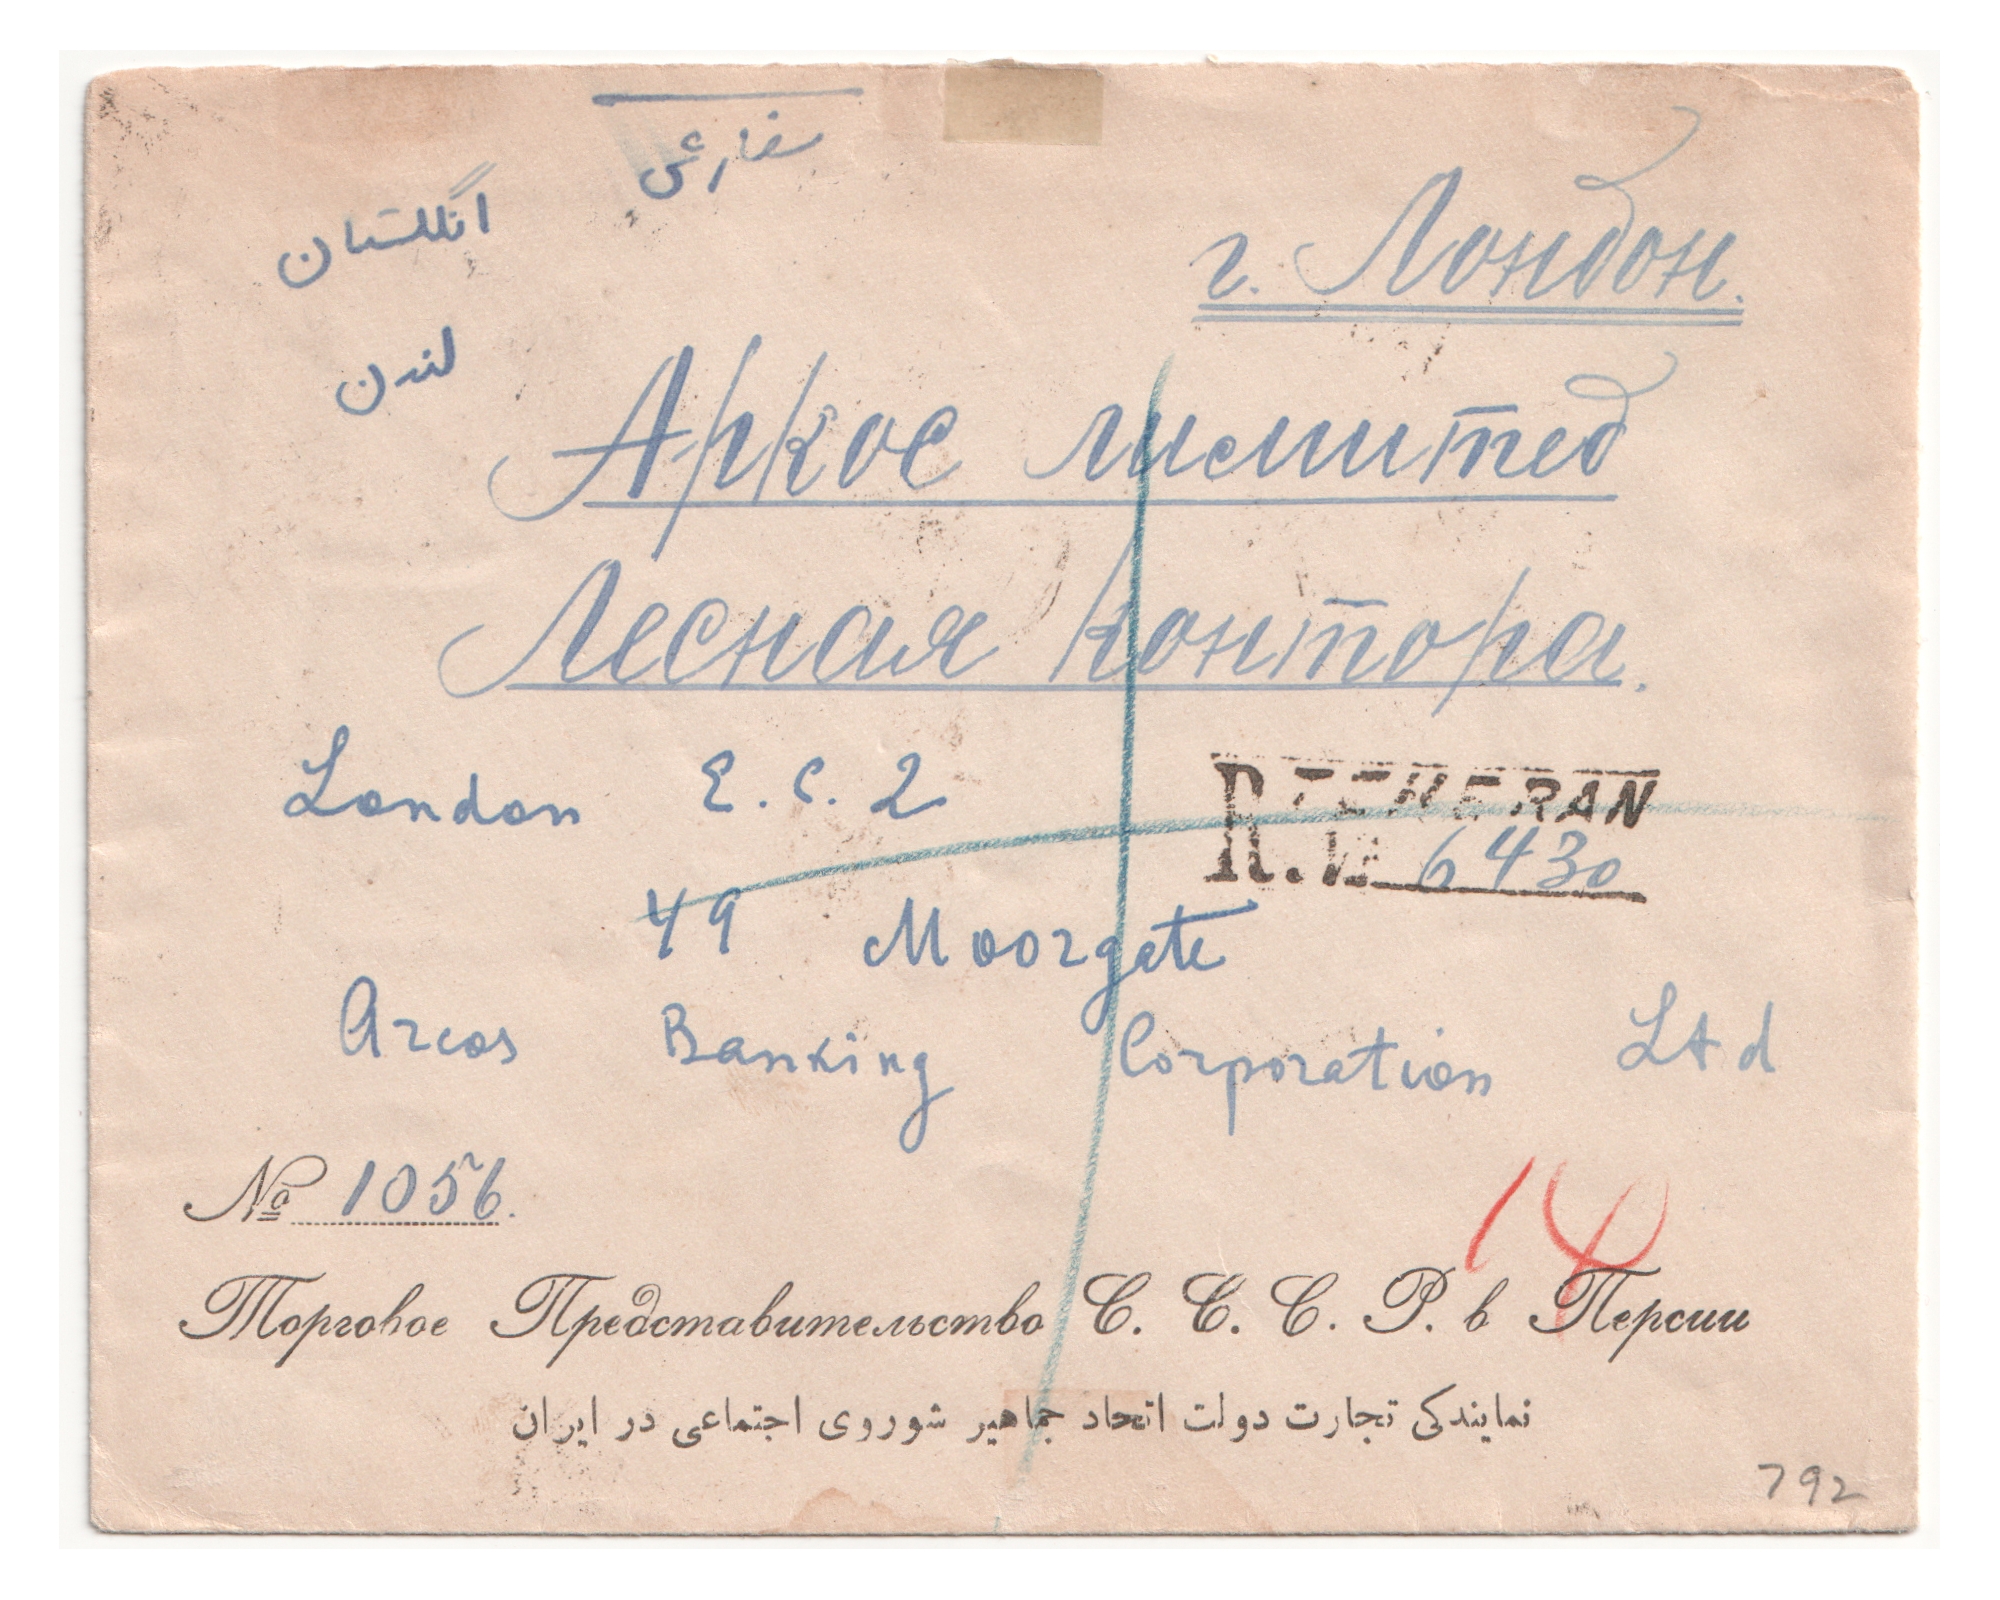 سفارشی
انگلستان
г. Лондон.
لندن
Аркос лимитед
Лесная контора.
London E. C. 2
R. TEHERAN
№ 6430
49 Moorgate
Arcos Banking Corporation Ltd
№ 1056.
14
Торговое Представительство С. С. С. Р. в Персии
نمایندگی تجارت دولت اتحاد جماهیر شوروی اجتماعی در ایران
792